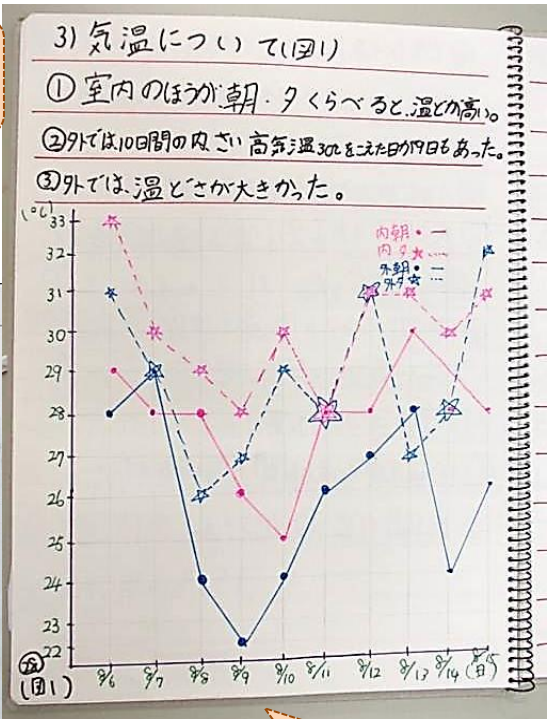 3) 気温について(図1)
①室内のほうが朝・夕くらべると、温どが高い。
②外では、10日間の内、さい高気温30℃をこえた日が9日もあった。
③外では、温どさが大きかった。
(℃)
33
32
31
30
29
28
27
26
25
24
23
22
内朝
内夕
外朝
外夕
8/6 8/7 8/8 8/9 8/10 8/11 8/12 8/13 8/14 8/15
(日)
(図1)